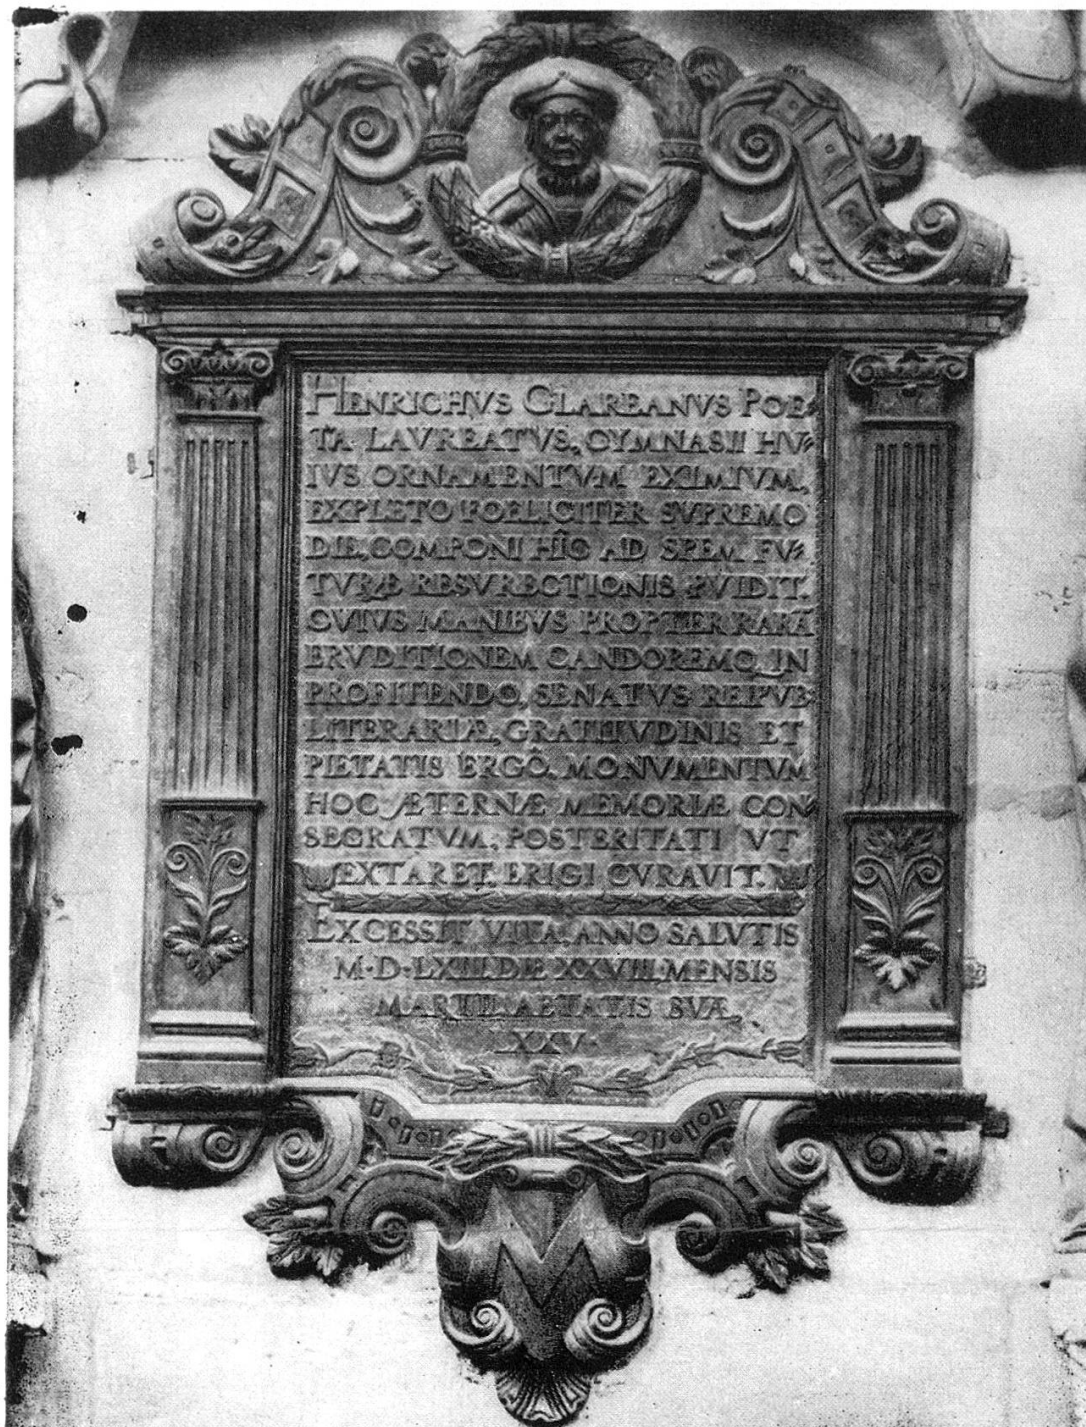 HENRICHVS GLAREANVS POE⸗
TA LAVREATVS, GYMNASII HV⸗
IVS ORNAMENTVM EXIMIVM,
EXPLETO FOELICITER SVPREMO
DIE, COMPONI HÎC AD SPEM FV⸗
TVRÆ RESVRECTIONIS PVIDIT.
CVIVS MANIBVS PROPTER RARÃ
ERVDITIONEM CANDOREMQ. IN
PROFITENDO, SENATVS REIPVB:
LITERARIÆ, GRATITVDINIS ET
PIETATIS ERGÔ, MONVMENTVM
HOC ÆTERNÆ MEMORIÆ CON⸗
SECRATVM, POSTERITATI VT
EXTARET, ERIGI CVRAVIT.
EXCESSIT VITA, ANNO SALVTIS
M·D·LXIII. DIE XXVIII. MENSIS
MARTII. AETATIS SVÆ,
XXV·